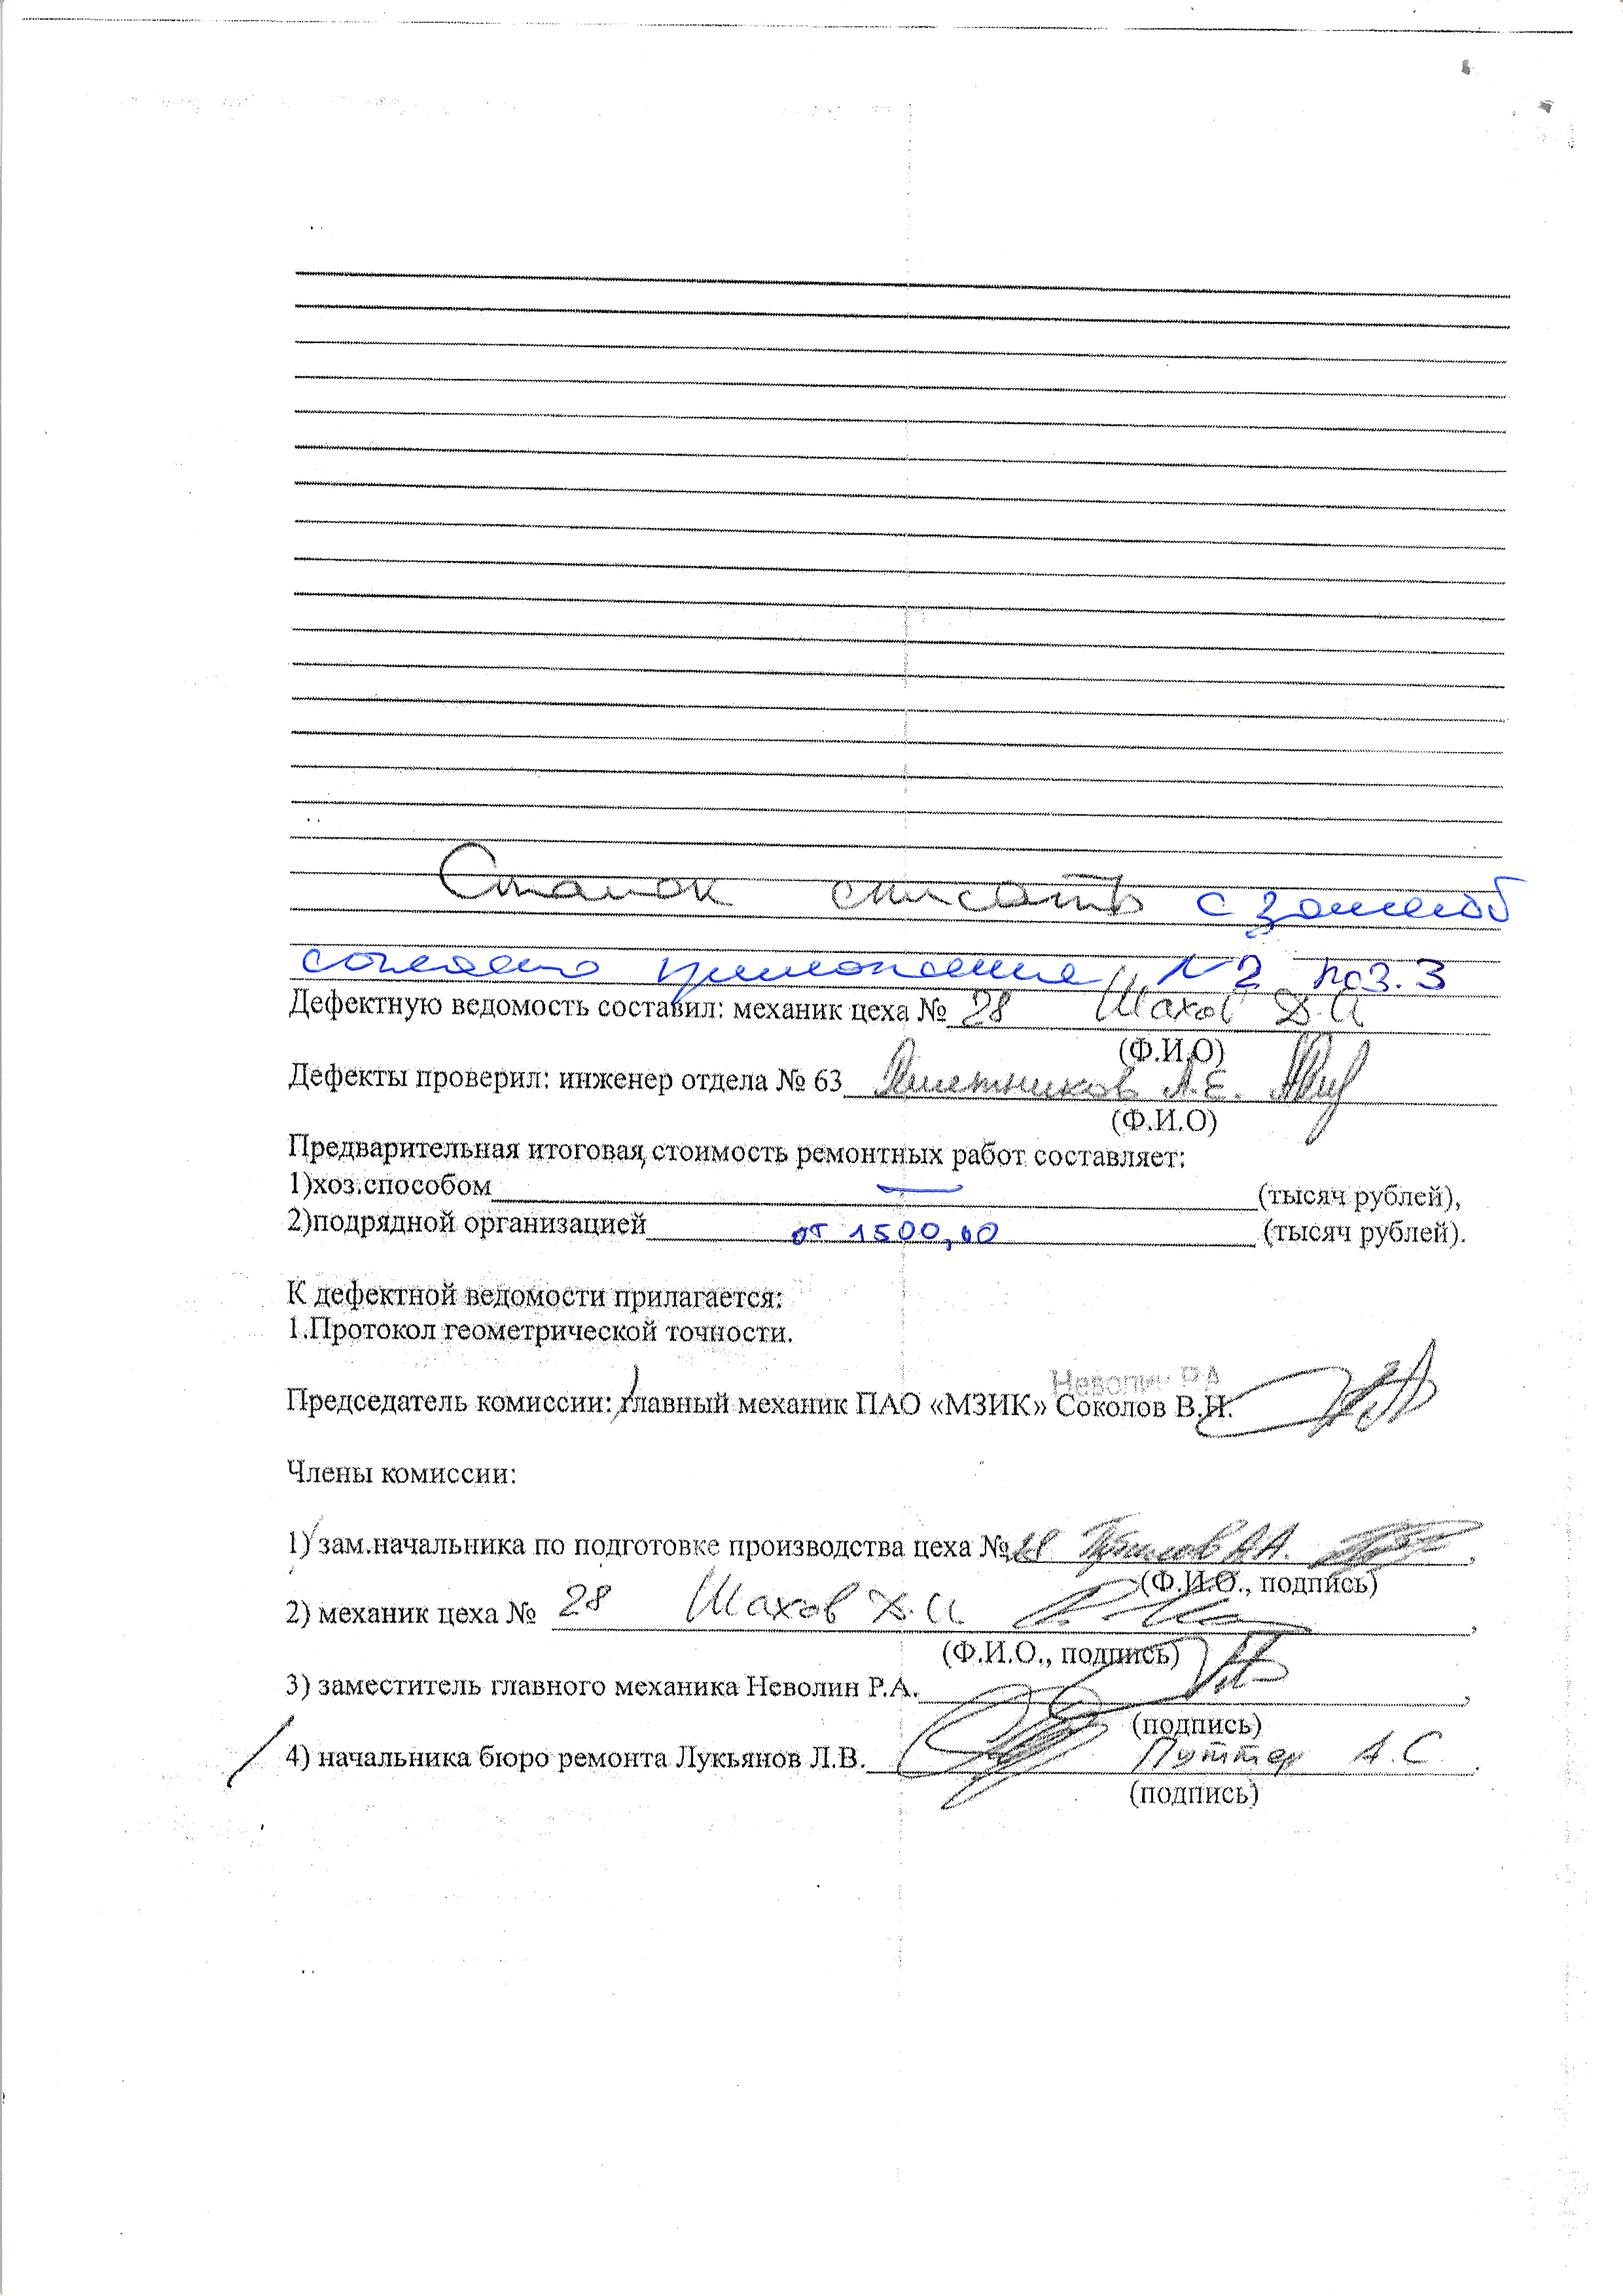 Станок списать с заменой
согласно приложения N2 поз. 3
Дефектную ведомость составил: механик цеха № 28 Шахов Д.И
(Ф.И.О)
Дефекты проверил: инженер отдела № 63 А.Е.
(Ф.И.О)
Предварительная итоговая стоимость ремонтных работ составляет:
1)хоз.способом — (тысяч рублей),
2)подрядной организацией от 1500,00 (тысяч рублей).
К дефектной ведомости прилагается:
1.Протокол геометрической точности.
Неволин Р.А
Председатель комиссии: главный механик ПАО «МЗИК» Соколов В.Н.
Члены комиссии:
1) зам.начальника по подготовке производства цеха № А.А.
(Ф.И.О., подпись)
2) механик цеха № 28 Шахов Д.И
(Ф.И.О., подпись)
3) заместитель главного механика Неволин Р.А.
(подпись)
4) начальника бюро ремонта Лукьянов Л.В. Путтер А.С.
(подпись)